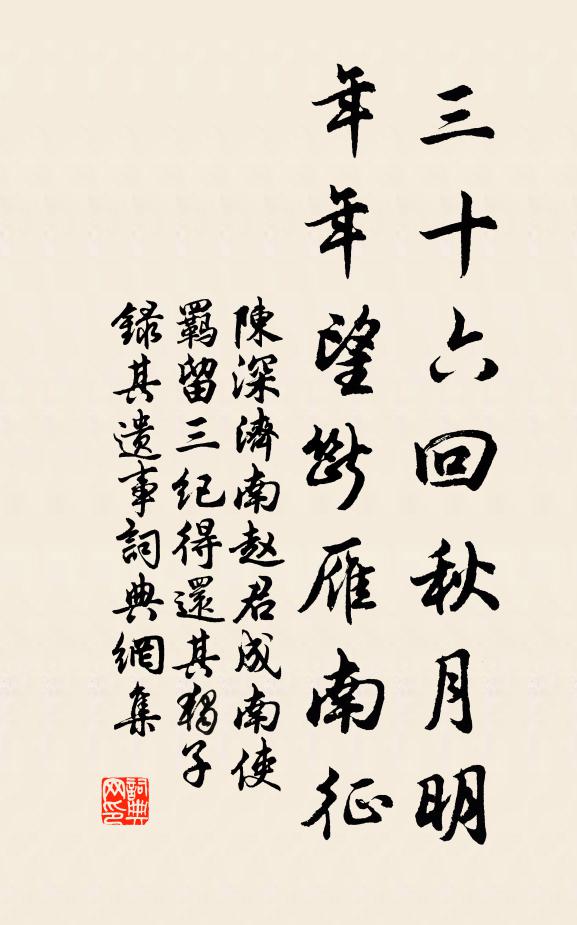 三十六回秋月明
年年望断雁南征
陳深濟南赵君成南使
羁留三紀得還其獨子
録其遗事詞典網集
詞典
网印